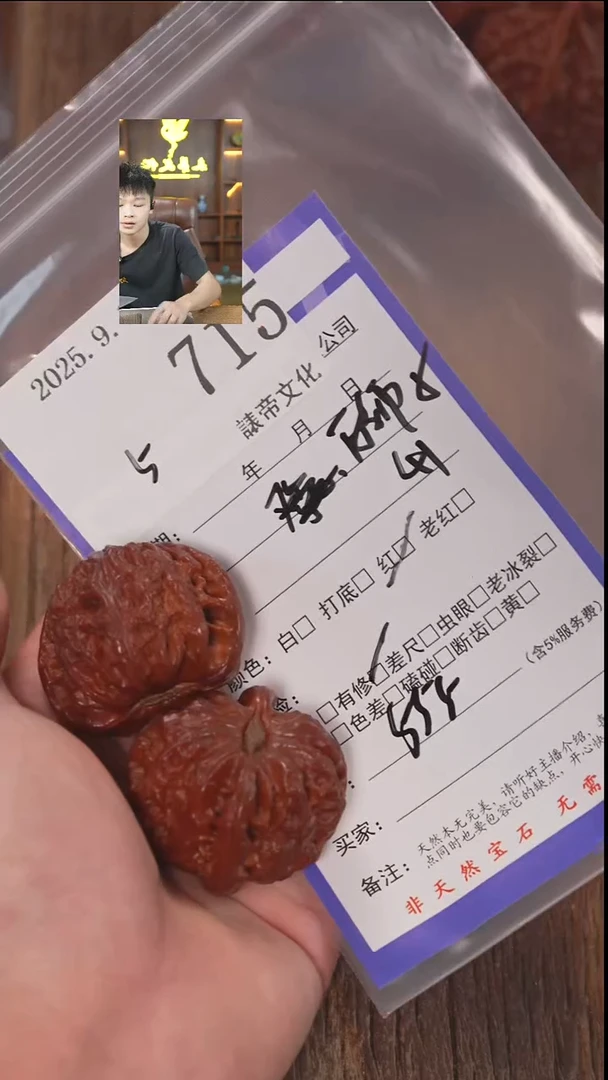 2025.9.
715
誌帝文化 公司
5
年 月 日
期:
41
颜色: 白□ 打底□ 红□ 老红□
险: □有修□差尺□虫眼□老冰裂□
□色差□磕碰□断齿□黄□
555
(含5%服务费)
买家:
备注: 天然本无完美, 请听好主播介绍,
点同时也要包容它的缺点, 开心快
非天然宝石 无需